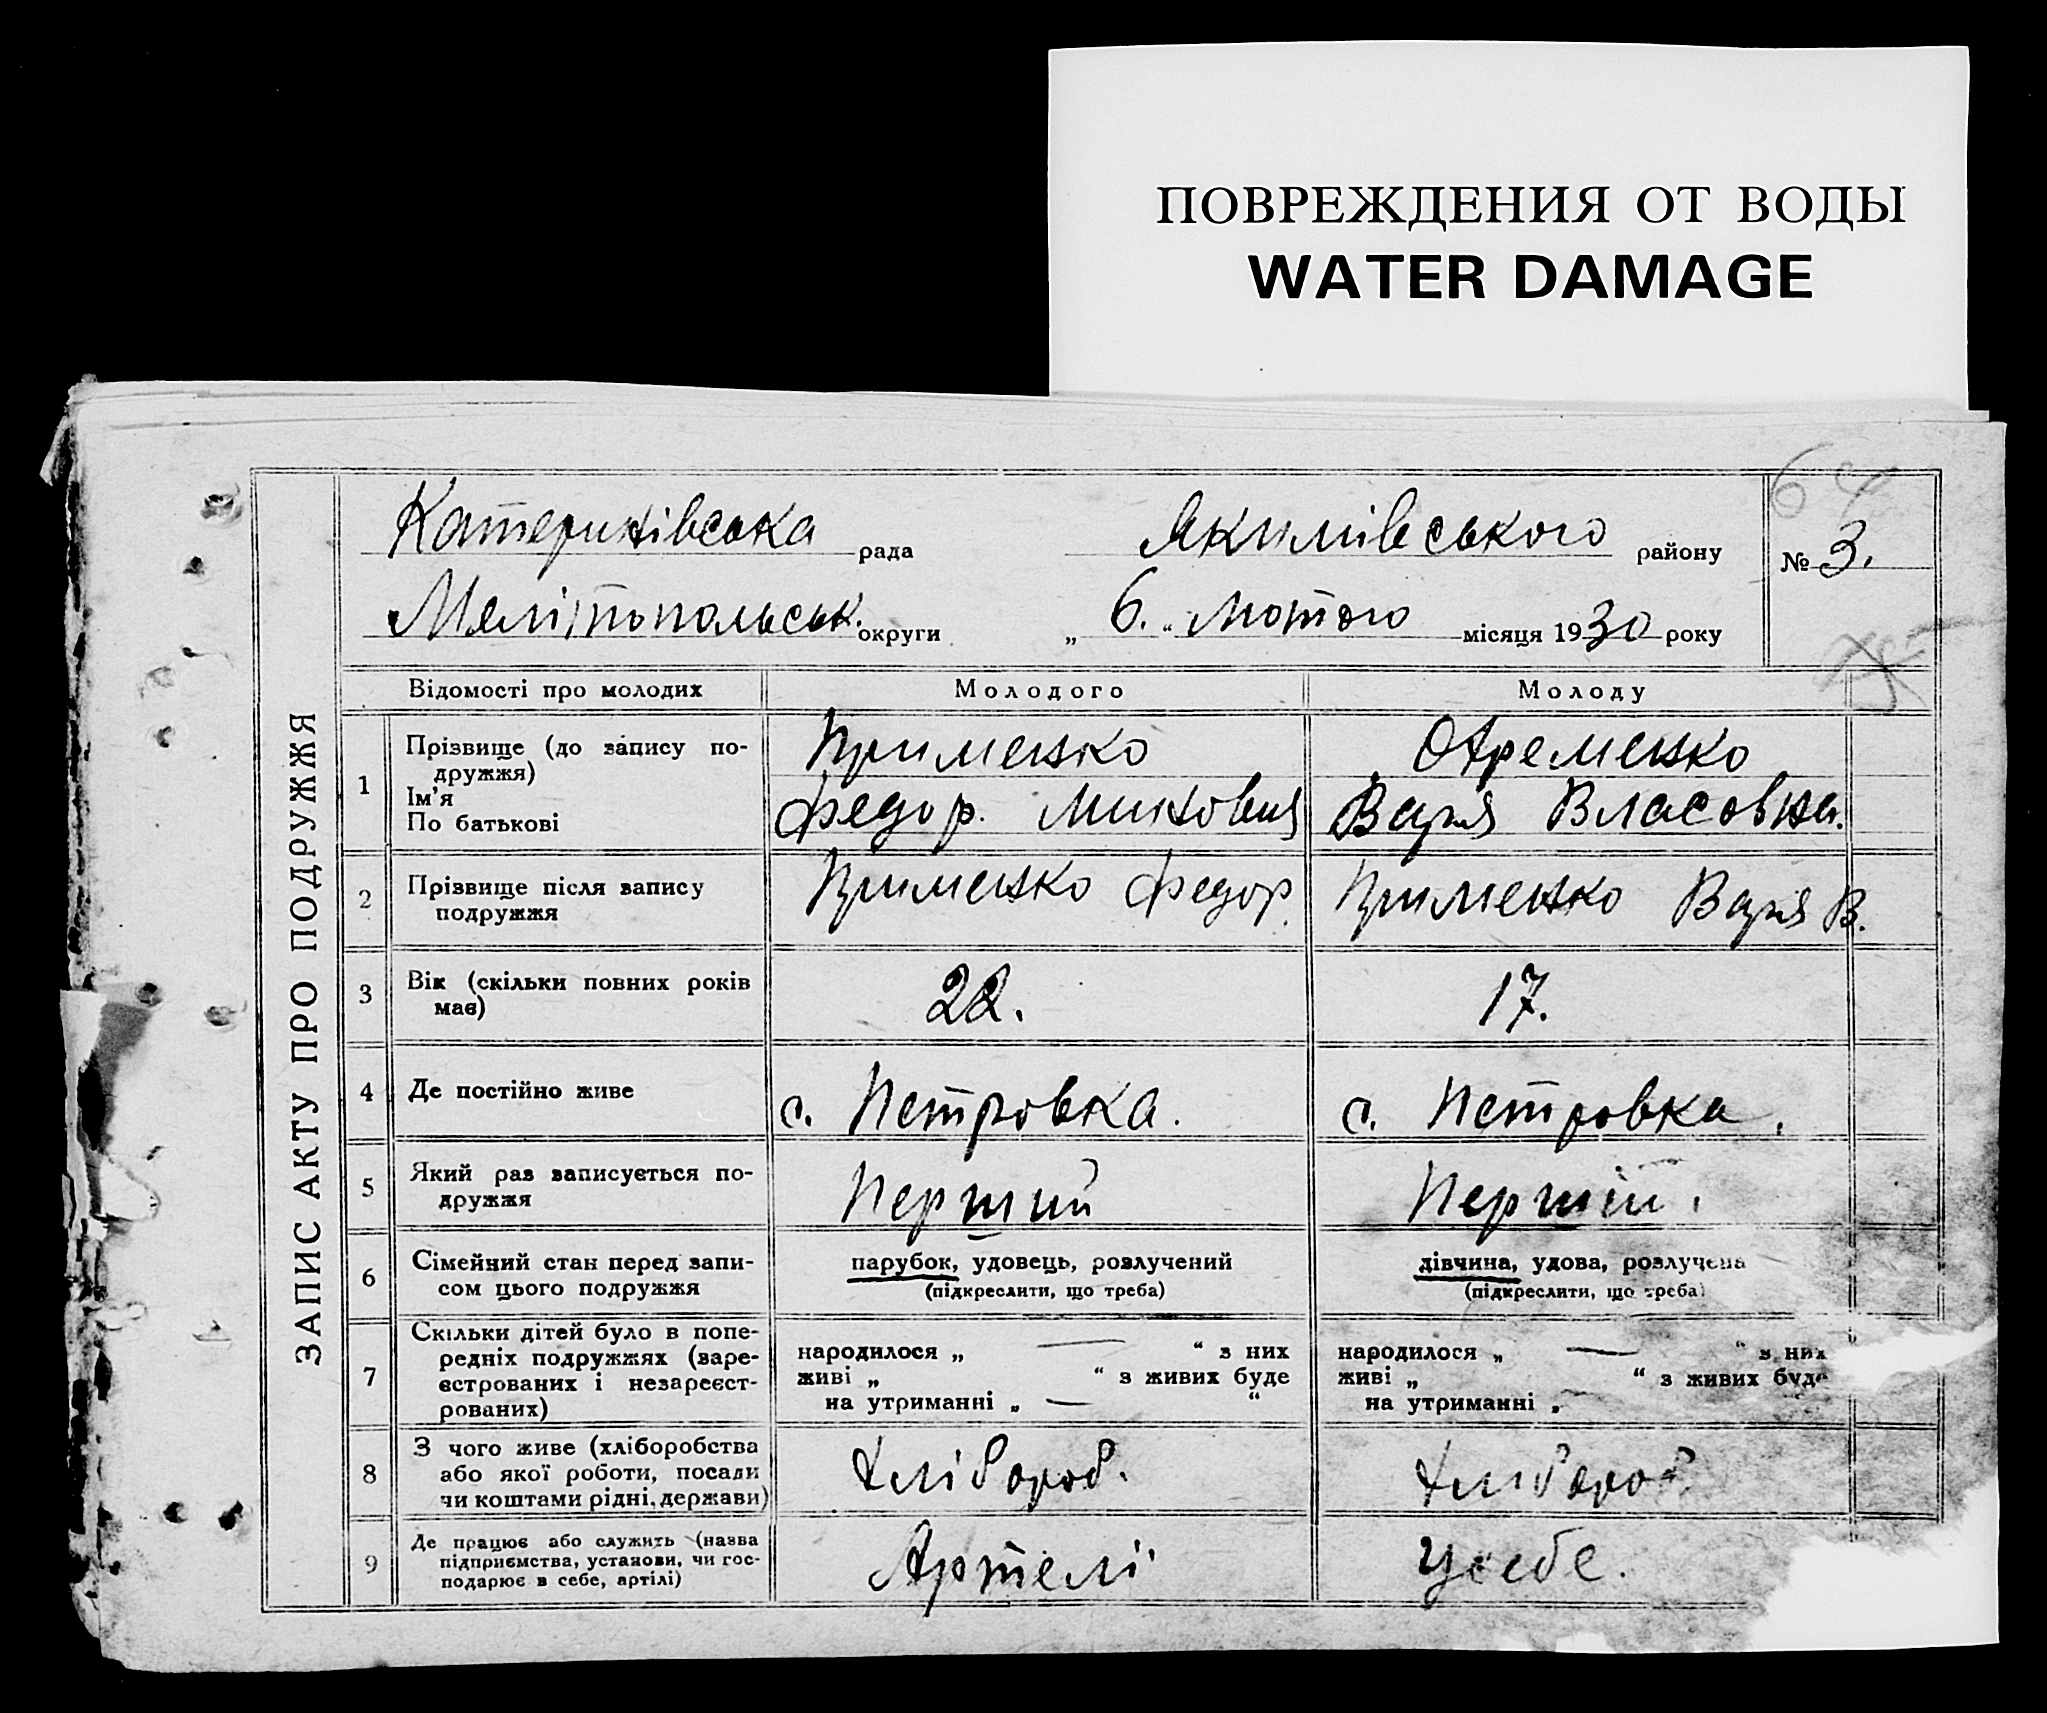 ПОВРЕЖДЕНИЯ ОТ ВОДЫ
WATER DAMAGE
64
Катеринівська рада Якимівського району № 3.
Меліпопольськ. округи „ 6. “ Лютого місяця 1930 року
ЗАПИС АКТУ ПРО ПОДРУЖЖЯ
Відомості про молодих Молодого Молоду
1 Прізвище (до запису по-
дружжя)
Ім'я
По батькові
Применко
Федор.
Веременко
Варя Власовна.
2 Прізвище після запису
подружжя
Применко Федор.
Применко Варя В.
3 Вік (скільки повних років
має)
22.
17.
4 Де постійно живе
с. Петровка.
с. Петровка.
5 Який раз записується по-
дружжя
Перший
Першій.
6 Сімейний стан перед запи-
сом цього подружжя
парубок, удовець, розлучений
(підкреслити, що треба)
дівчина, удова, розлучена
(підкреслити, що треба)
7 Скільки дітей було в попе-
редніх подружжях (заре-
єстрованих і незареєст-
рованих)
народилося „ — “ з них
живі „ “ з живих буде
на утриманні „ — “
народилося „ — “ з них
живі „ “ з живих буде
на утриманні „
8 З чого живе (хліборобства
або якої роботи, посади
чи коштами рідні, держави)
Хлібороб.
Хлібороб
9 Де працює або служить (назва
підприємства, установи, чи гос-
подарює в себе, артілі)
Артелі
Усебе.